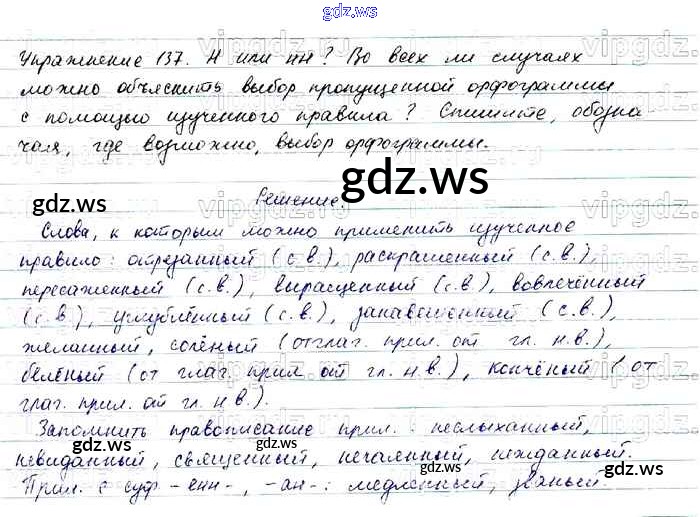 gdz.ws
Упражнение 137. Н или нн? Во всех ли случаях
можно объяснить выбор пропущенной орфограммы
с помощью изученного правила? Спишите, обозна-
чая, где возможно, выбор орфограммы.
gdz.ws
Решение.
Слова, к которым можно применить изученное
правило: отрезанный (с.в.), раскрашенный (с.в.),
пересаженный (с.в.), выращенный (с.в.), вовлечённый
(с.в.), углублённый (с.в.), занавешенный (с.в.),
желанный, солёный (отглаг. прил. от гл. н.в.),
белёный (от глаг. прил. от гл. н.в.), кончёный (от
глаг. прил. от гл. н.в.).
gdz.ws gdz.ws
Запомнить правописание прил.: неслыханный,
невиданный, священный, нечаянный, нежданный.
gdz.ws
Прил. с суф. -енн-, -ан-: медленный, званый.
gdz.ws